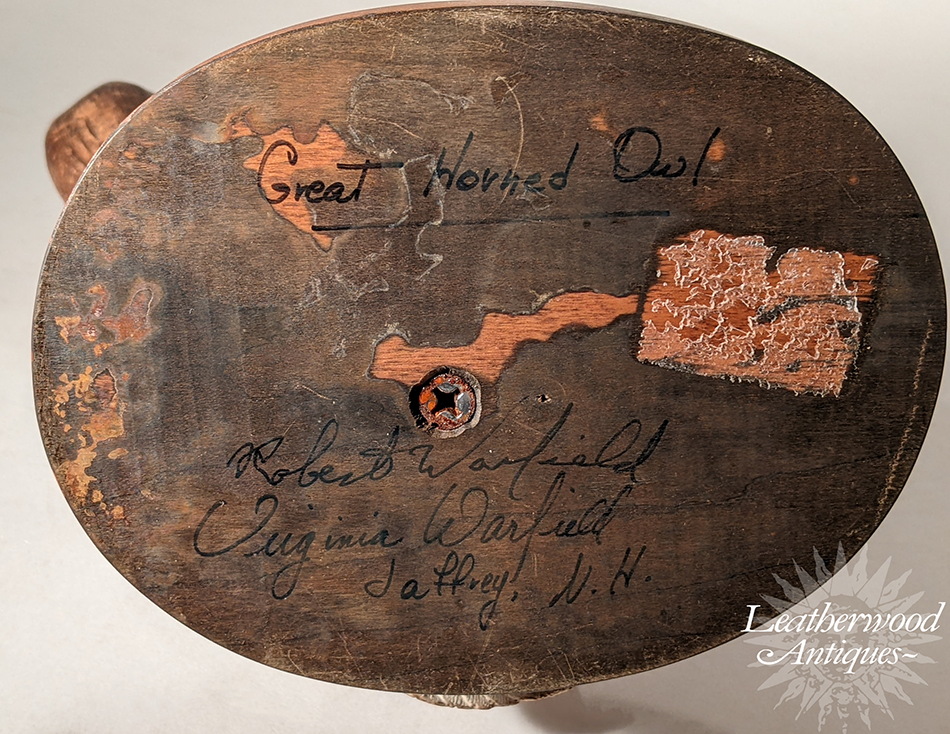 Great Horned Owl
Robert Warfield
Virginia Warfield
Jaffrey, N.H.
Leatherwood
Antiques~